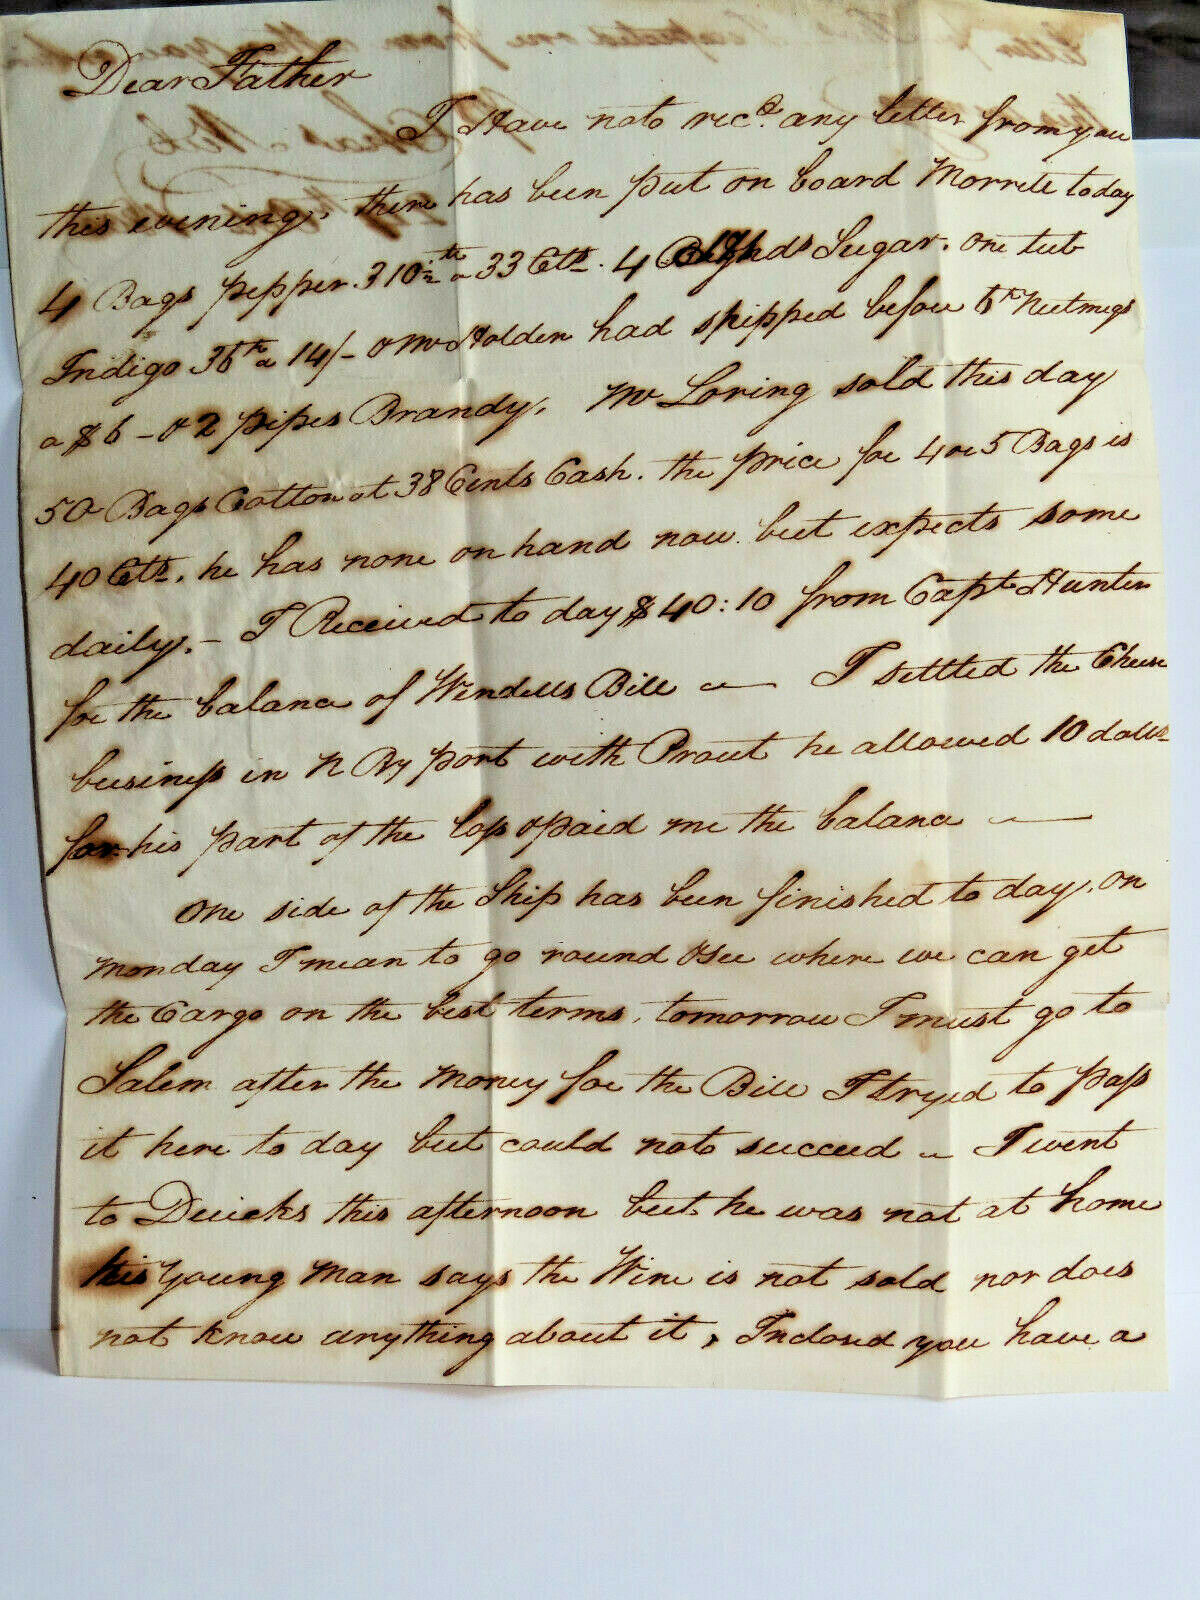 Dear Father
I Have not recd. any letter from you
this evening, there has been put on board Morrill today
4 Bags pepper. 310 lb a 33 Cts. 4 hhds Sugar. one tub
Indigo 36 lb a 14/- & Mr Holden had shipped before 6 lb Nutmegs
a $6 - & 2 pipes Brandy. Mr Loring sold this day
50 Bags Cotton at 38 Cents Cash. the price for 4 or 5 Bags is
40 Cts. he has none on hand now but expects some
daily. - I Received to day $40:10 from Capt Hunter
for the balance of Wendells Bill — I settled the Cheese
business in N By port with Prout he allowed 10 dolls
for his part of the loss & paid me the balance —
One side of the Ship has been finished to day, on
Monday I mean to go round & see where we can get
the Cargo on the best terms, tomorrow I must go to
Salem after the Money for the Bill I tryed to pass
it here to day but could not succeed — I went
to this afternoon but he was not at home
his Young Man says the Wine is not sold nor does
not know anything about it, Inclosed you have a